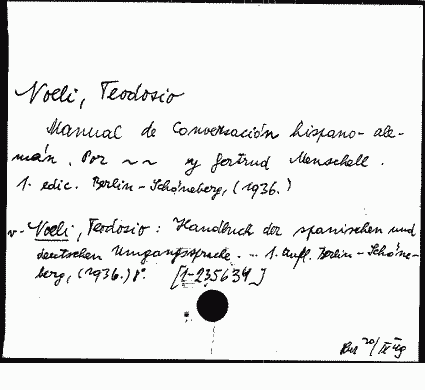 Noeli, Teodosio
Manual de Conversación hispano-ale-
mán. Por ~~ y Gertrud Menschell.
1. edic. Berlin-Schöneberg, (1936.)
v. Noeli, Teodosio: Handbuch der spanischen und
deutschen Umgangssprache. - 1. Aufl. Berlin-Schöne-
berg, (1936.) 8°. [1-235634]